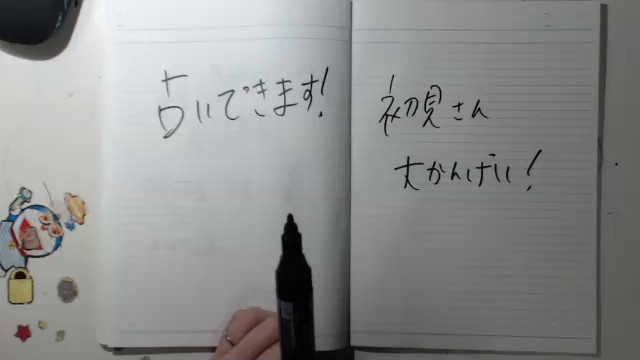 占いできます!
初見さん
大かんげい!